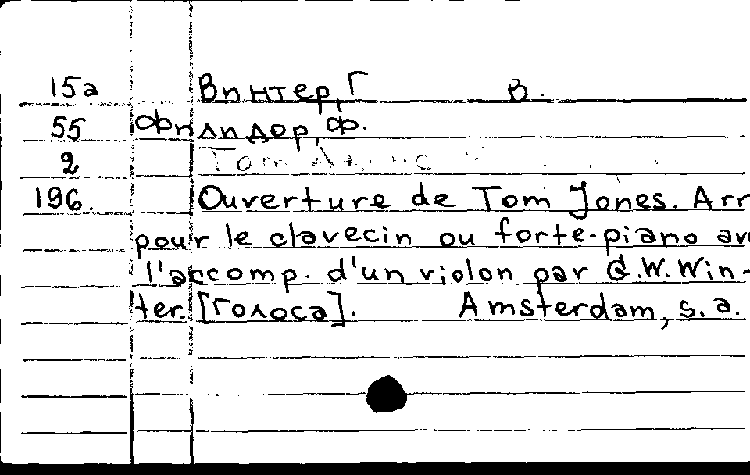 15а Винтер, Г В.
55 Филидор, Ф.
2 Том
196. Ouverture de Tom Jones. Arr
pour le clavecin ou forte-piano av
l'accomp. d'un violon par G.W. Win-
ter. [Голоса]. Amsterdam, s. a.